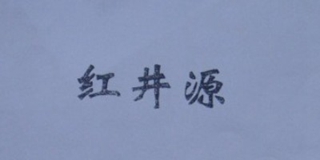 红井源